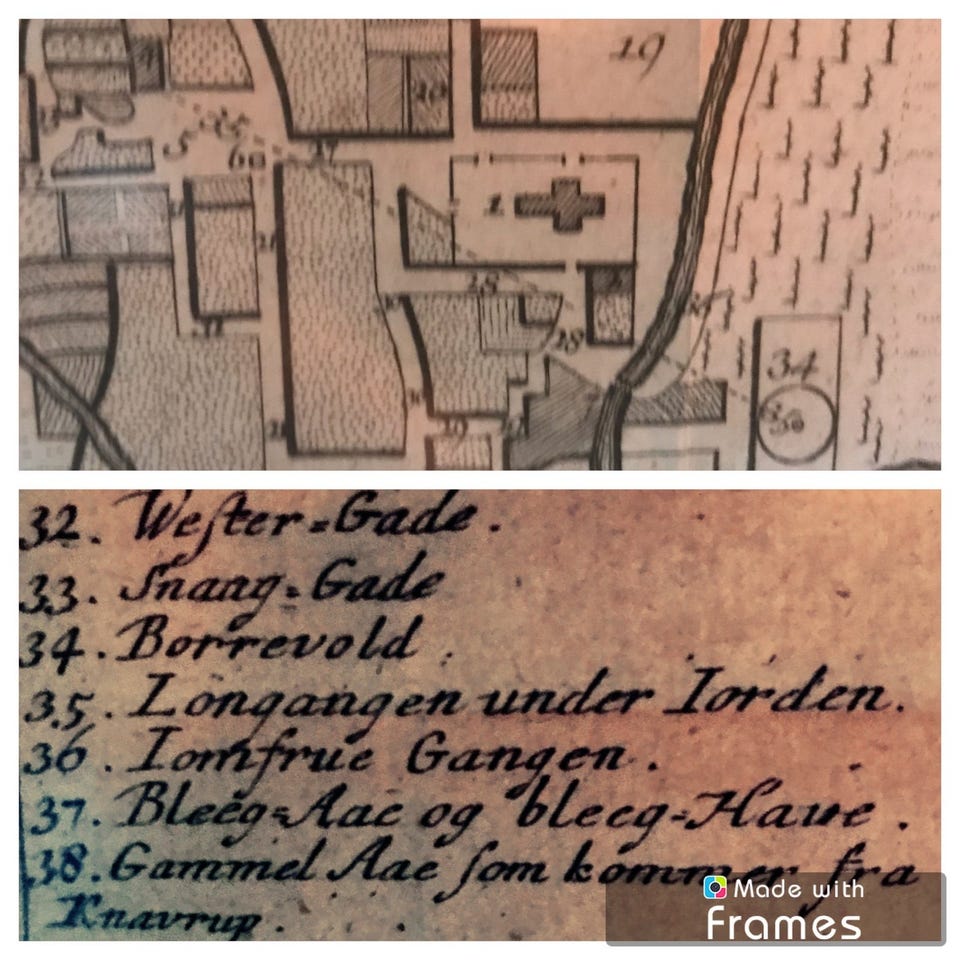 19
20
5
35
60
1
2
21
18
28
34
30
32. Weſter=Gade.
33. Snaag=Gade
34. Borrevold.
35. Longangen under Iorden.
36. Iomfrue Gangen.
37. Bleeg=Aae og bleeg=Haue.
38. Gammel Aae ſom kommer fra
Knavrup.
Made with
Frames